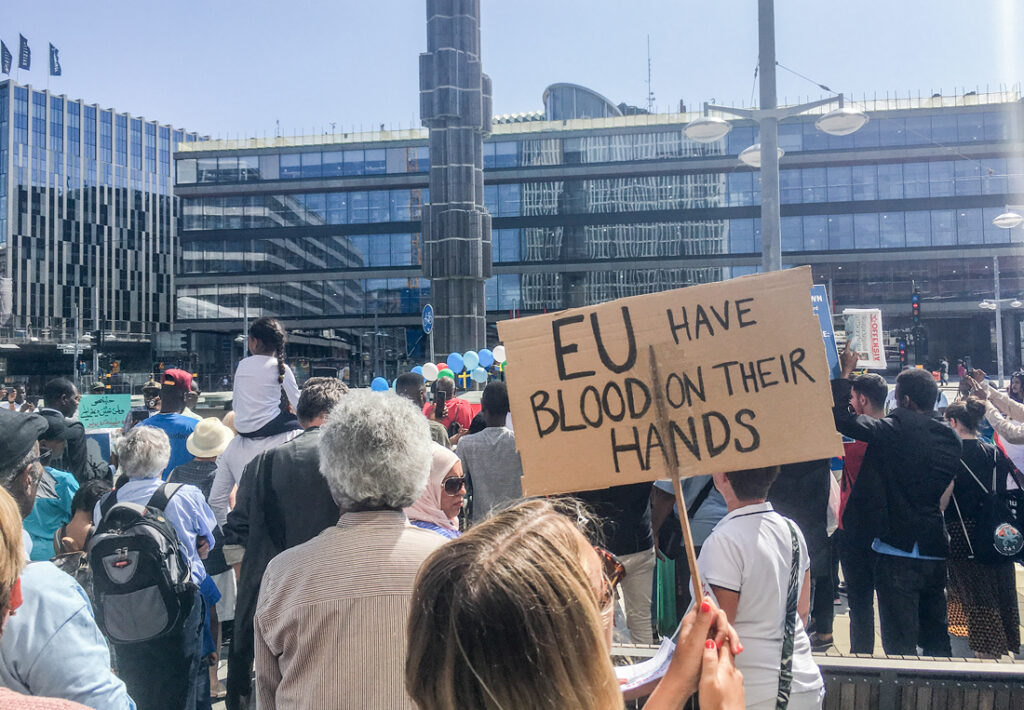 EU HAVE
BLOOD ON THEIR
HANDS
OFFENSIV